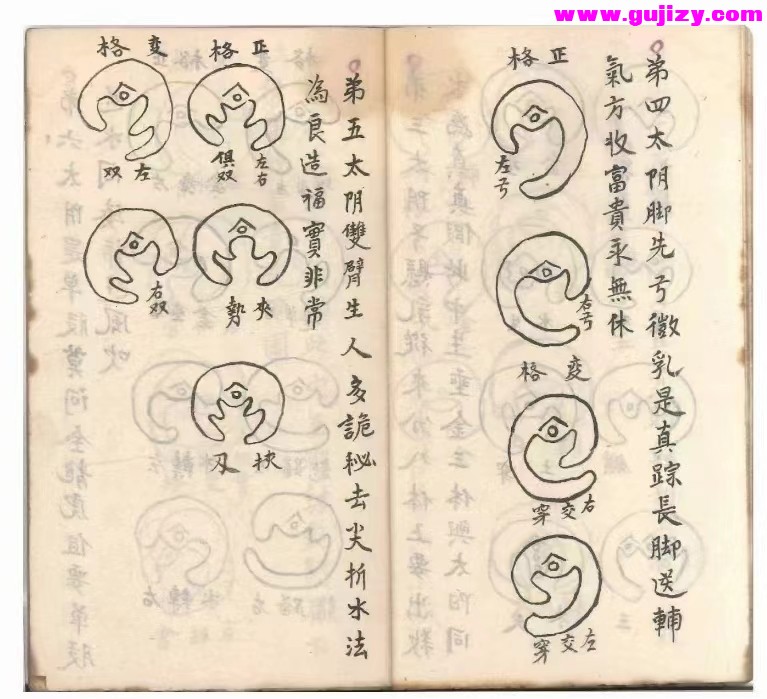 www.gujizy.com
弟四太阴脚先弓徵乳是真踪長脚送輔
氣方收富貴永無休
正格
左弓
右弓
変格
右交穿
左交穿
弟五太阴雙臂生人多詭秘去尖折水法
為良造福實非常
正格
左右俱双
夾勢
変格
左双
右双